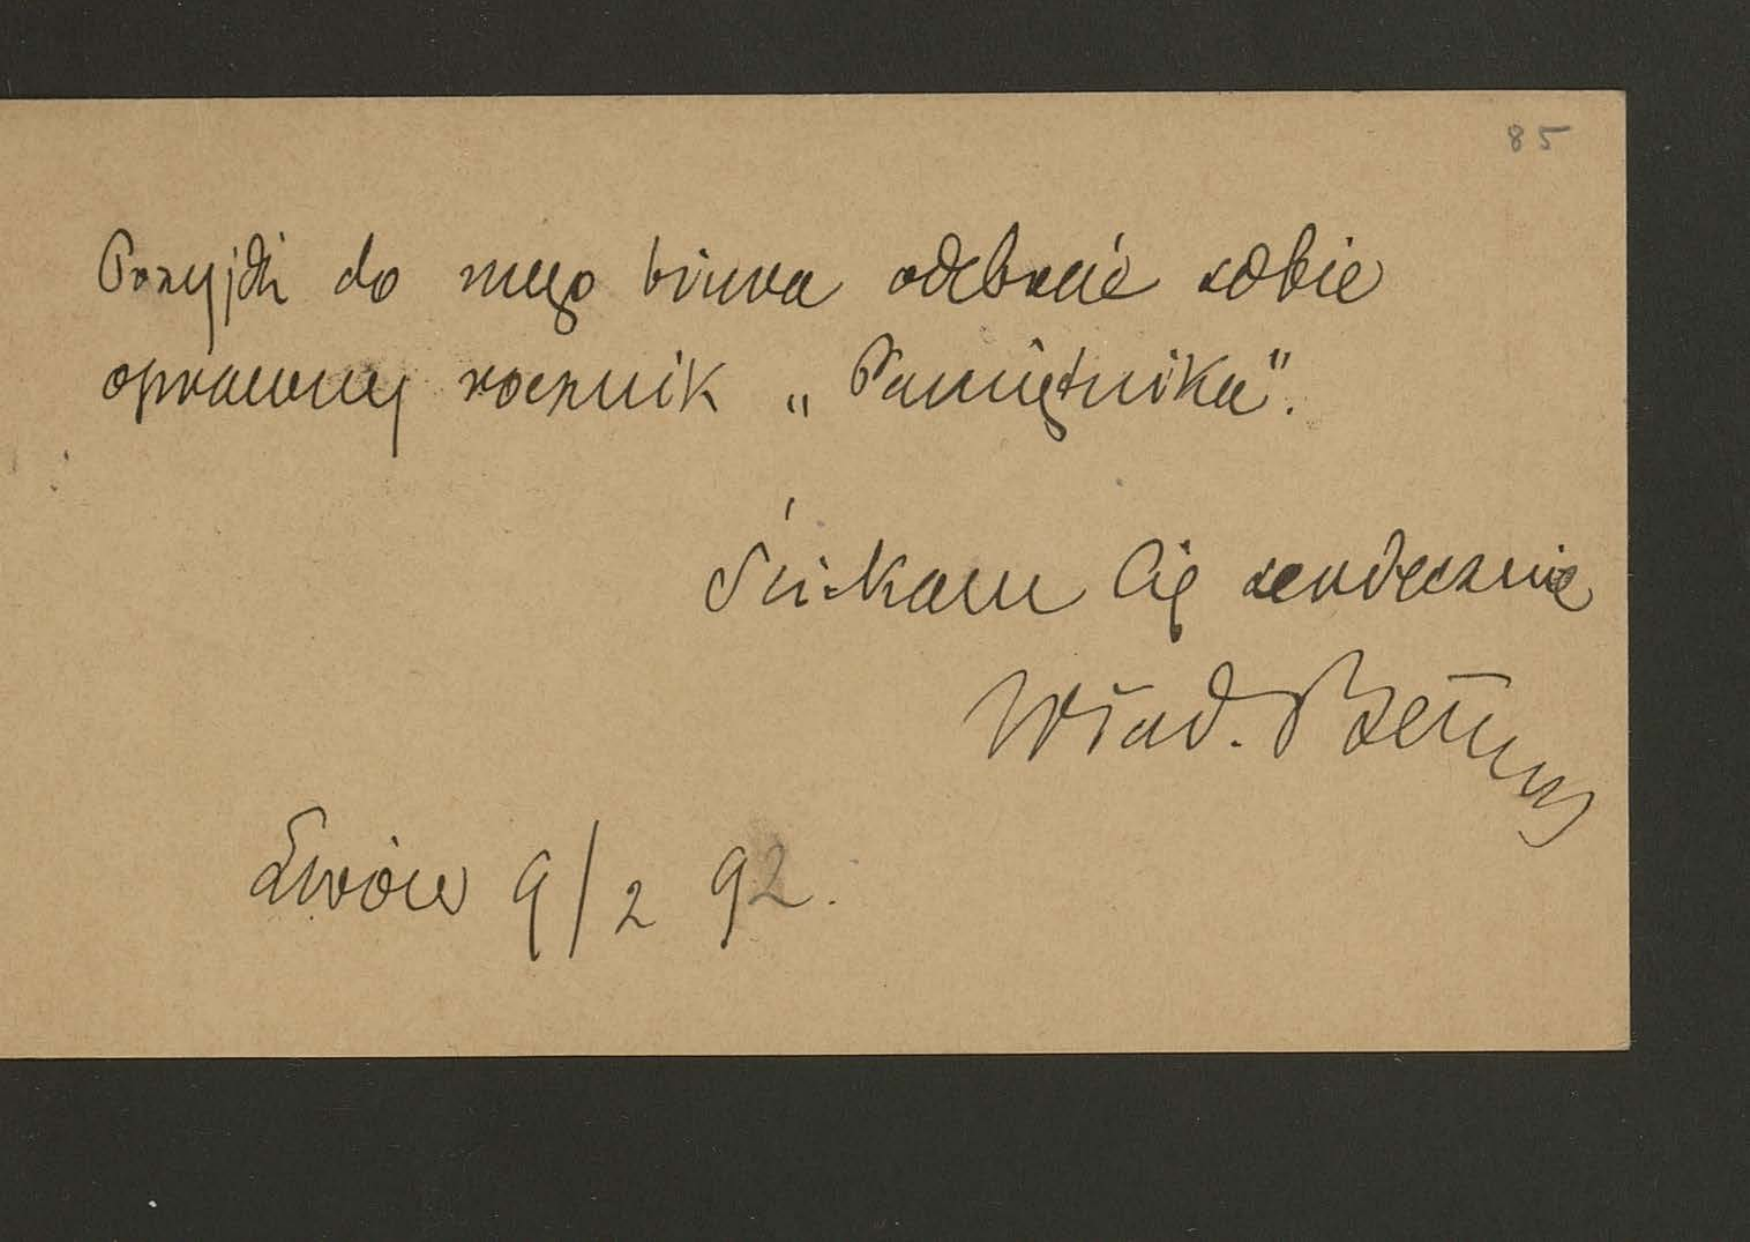 85
Przyjdź do mego biura odebrać sobie
oprawny rocznik „Pamiętnika”.
Ściskam Cię serdecznie
Wład. Bełza
Lwów 9/2 92.